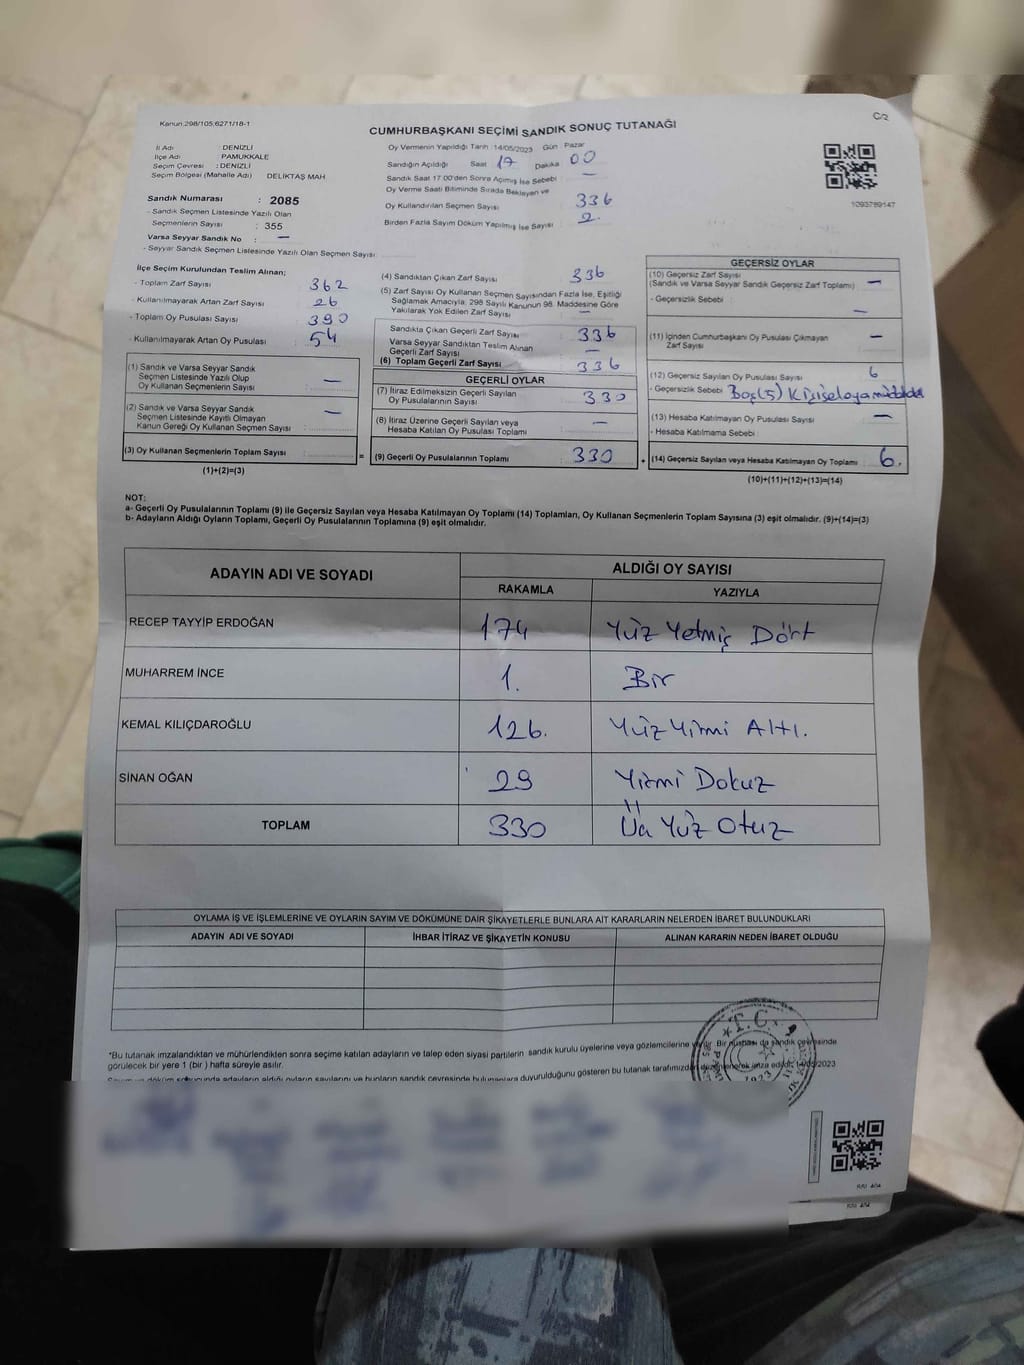 Kanun:298/105,6271/18-1
C/2
CUMHURBAŞKANI SEÇİMİ SANDIK SONUÇ TUTANAĞI
İl Adı : DENİZLİ
İlçe Adı : PAMUKKALE
Seçim Çevresi : DENİZLİ
Seçim Bölgesi (Mahalle Adı) DELİKTAŞ MAH
Sandık Numarası : 2085
- Sandık Seçmen Listesinde Yazılı Olan
Seçmenlerin Sayısı : 355
Varsa Seyyar Sandık No : —
- Seyyar Sandık Seçmen Listesinde Yazılı Olan Seçmen Sayısı
Oy Vermenin Yapıldığı Tarih :14/05/2023 Gün : Pazar
Sandığın Açıldığı Saat 17 Dakika 00
Sandık Saat 17:00'den Sonra Açımış İse Sebebi : —
Oy Verme Saati Bitiminde Sırada Bekleyen ve
Oy Kullandırılan Seçmen Sayısı 336
Birden Fazla Sayım Döküm Yapılmış İse Sayısı : 2.
1093789147
İlçe Seçim Kurulundan Teslim Alınan;
- Toplam Zarf Sayısı : 362
- Kullanılmayarak Artan Zarf Sayısı : 26
- Toplam Oy Pusulası Sayısı : 390
- Kullanılmayarak Artan Oy Pusulası : 54
(1) Sandık ve Varsa Seyyar Sandık
Seçmen Listesinde Yazılı Olup
Oy Kullanan Seçmenlerin Sayısı : —
(2) Sandık ve Varsa Seyyar Sandık
Seçmen Listesinde Kayıtlı Olmayan
Kanun Gereği Oy Kullanan Seçmen Sayısı : —
(3) Oy Kullanan Seçmenlerin Toplam Sayısı :
(1)+(2)=(3)
(4) Sandıktan Çıkan Zarf Sayısı : 336
(5) Zarf Sayısı Oy Kullanan Seçmen Sayısından Fazla İse, Eşitliği
Sağlamak Amacıyla; 298 Sayılı Kanunun 98. Maddesine Göre
Yakılarak Yok Edilen Zarf Sayısı : —
Sandıkta Çıkan Geçerli Zarf Sayısı : 336
Varsa Seyyar Sandıktan Teslim Alınan
Geçerli Zarf Sayısı : —
(6) Toplam Geçerli Zarf Sayısı : 336
GEÇERLİ OYLAR
(7) İtiraz Edilmeksizin Geçerli Sayılan
Oy Pusulalarının Sayısı : 330
(8) İtiraz Üzerine Geçerli Sayılan veya
Hesaba Katılan Oy Pusulası Toplamı : —
= (9) Geçerli Oy Pusulalarının Toplamı : 330
GEÇERSİZ OYLAR
(10) Geçersiz Zarf Sayısı
(Sandık ve Varsa Seyyar Sandık Geçersiz Zarf Toplamı) : —
- Geçersizlik Sebebi : —
(11) İçinden Cumhurbaşkanı Oy Pusulası Çıkmayan
Zarf Sayısı : —
(12) Geçersiz Sayılan Oy Pusulası Sayısı : 6
- Geçersizlik Sebebi : Boş(5)
(13) Hesaba Katılmayan Oy Pusulası Sayısı : —
- Hesaba Katılmama Sebebi :
+ (14) Geçersiz Sayılan veya Hesaba Katılmayan Oy Toplamı : 6.
(10)+(11)+(12)+(13)=(14)
NOT:
a- Geçerli Oy Pusulasının Toplamı (9) ile Geçersiz Sayılan veya Hesaba Katılmayan Oy Toplamı (14) Toplamları, Oy Kullanan Seçmenlerin Toplam Sayısına (3) eşit olmalıdır. (9)+(14)=(3)
b- Adayların Aldığı Oyların Toplamı, Geçerli Oy Pusulalarının Toplamına (9) eşit olmalıdır.
ADAYIN ADI VE SOYADI
ALDIĞI OY SAYISI
RAKAMLA YAZIYLA
RECEP TAYYİP ERDOĞAN 174 Yüz Yetmiş Dört
MUHARREM İNCE 1. Bir
KEMAL KILIÇDAROĞLU 126. Yüz Yirmi Altı.
SİNAN OĞAN 29 Yirmi Dokuz
TOPLAM 330 Üç Yüz Otuz
OYLAMA İŞ VE İŞLEMLERİNE VE OYLARIN SAYIM VE DÖKÜMÜNE DAİR ŞİKAYETLERLE BUNLARA AİT KARARLARIN NELERDEN İBARET BULUNDUKLARI
ADAYIN ADI VE SOYADI İHBAR İTİRAZ VE ŞİKAYETİN KONUSU ALINAN KARARIN NEDEN İBARET OLDUĞU
*Bu tutanak imzalandıktan ve mühürlendikten sonra seçime katılan adayların ve talep eden siyasi partilerin sandık kurulu üyelerine veya gözlemcilerine Bir nüshası da sandık çevresinde
görülecek bir yere 1 (bir ) hafta süreyle asılır.
T.C.
1923